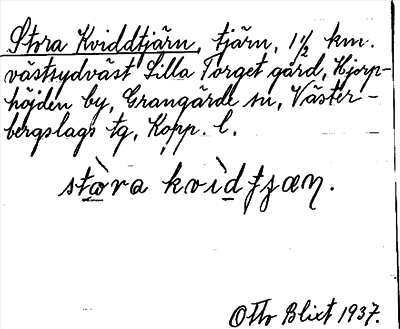 Stora Kviddtjärn, tjärn, 1½ km.
västsydväst Lilla Torget gård, Hjorp-
höjden by, Grangärde sn, Väster-
bergslags tg, Kopp. l.
stòra kvìdtʒæn.
Otto Blixt 1937.